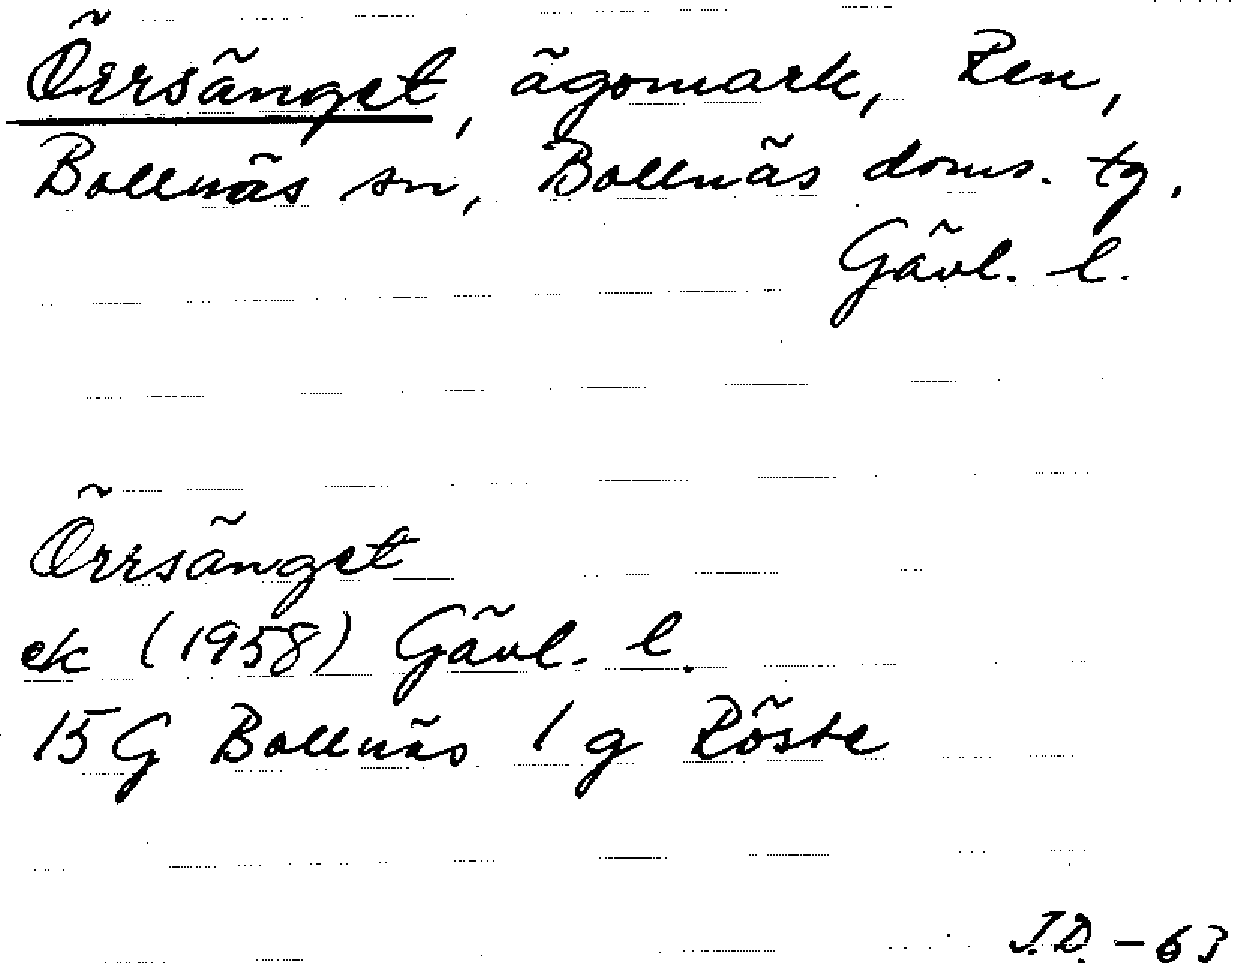 Örrsänget, ägomark, Ren,
Bollnäs sn, Bollnäs doms. tg.
Gävl. l.
Örrsänget
ek (1958) Gävl. l.
15G Bollnäs 1 g Röste
J.D. - 63